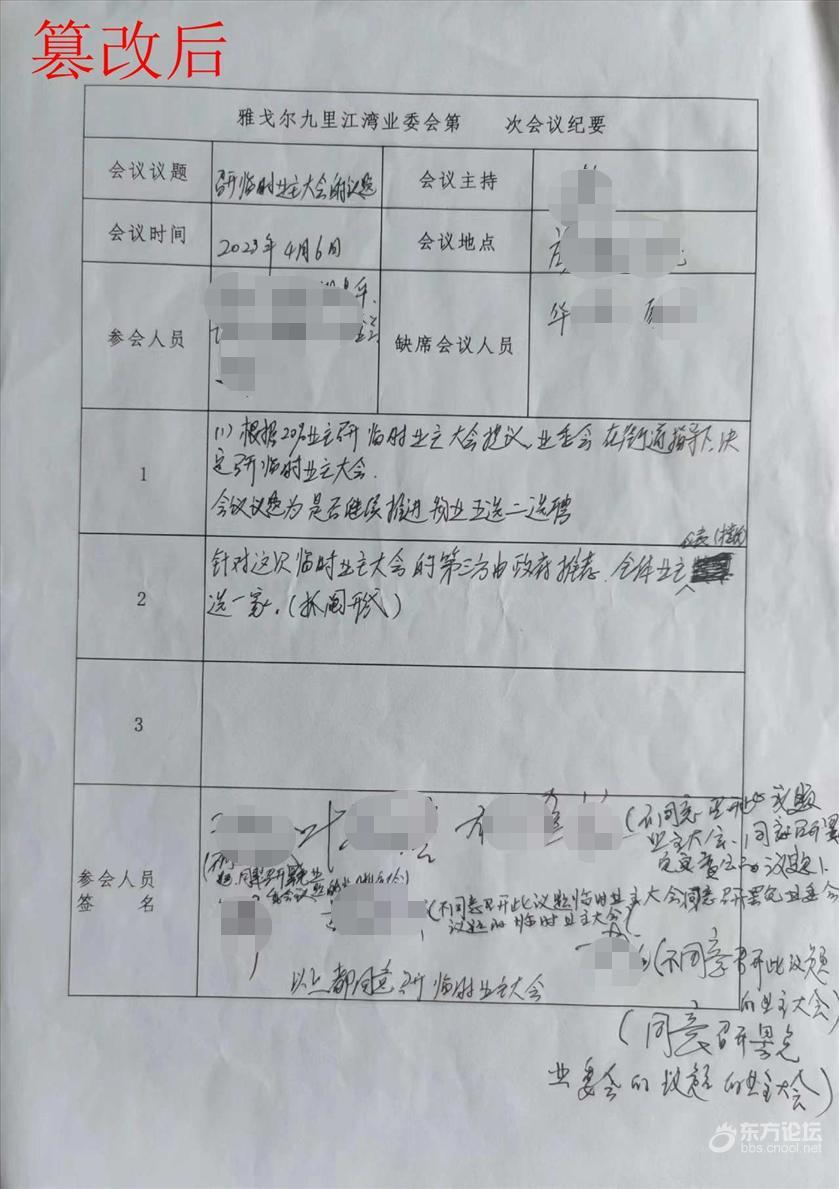 篡改后
雅戈尔九里江湾业委会第 次会议纪要
会议议题
召开临时业主大会的议题
会议主持
会议时间
2023年4月6日
会议地点
参会人员
缺席会议人员
华
1
(1) 根据20%业主召开临时业主大会提议、业委会在街道指导下,决
定召开临时业主大会.
会议议题为是否继续推进物业五选二选聘
2
针对这次临时业主大会的第三方由政府推荐.全体业主
选一家.(抓阄形式)
3
参会人员
签 名
(不同意召开此议题
业主大会、同意召开罢
议题)
(不同意召开此议题临时业主大会同意召开罢免业委会
议题的临时业主大会)
(不同意召开此议题
的业主大会)
以上都同意召开临时业主大会
(同意召开罢免
业委会的议题的业主大会)
东方论坛
bbs.cnool.net